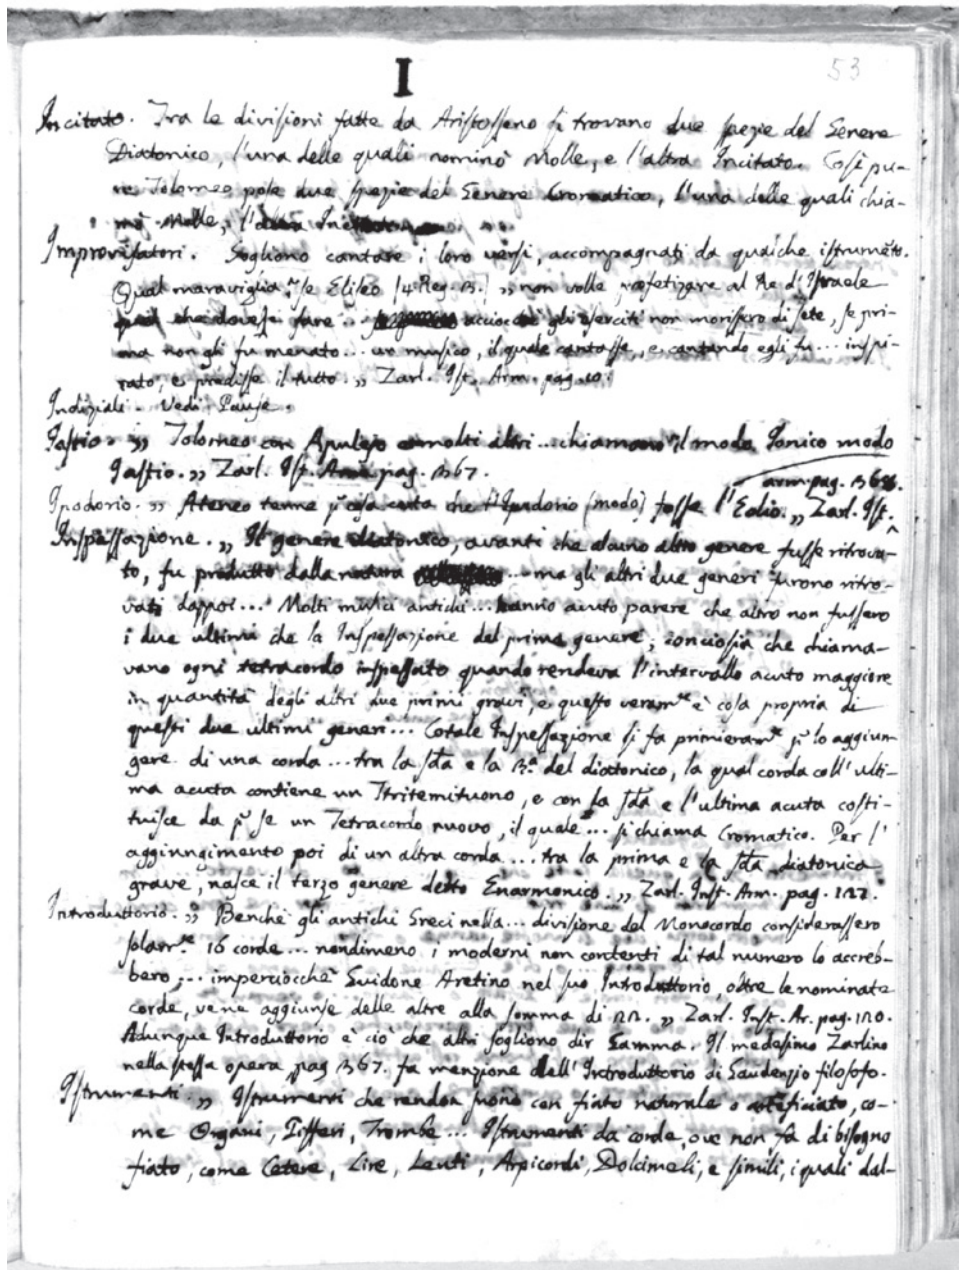 I
53
Incitato. Tra le divisioni fatte da Aristosseno si trovano due spezie del Genere
Diatonico, l'una delle quali nominò Molle, e l'altra Incitato. Così pu-
re Tolomeo pose due spezie del Genere Cromatico, l'una delle quali chia-
mò Molle, l'altra
Improvisatori. Sogliono cantare i loro versi, accompagnati da qualche istrumẽto.
Qual maraviglia, se Eliseo [4 Reg. 3.] „ non volle profetizare al Re d'Israele
che dovesse fare ... acciocchè gli eserciti non morissero di sete, se pri-
ma non gli fu menato ... un musico, il quale cantasse, e cantando egli fu ... inspi-
rato, e predisse il tutto. „ Zarl. Ist. Arm. pag. 10.
Indiziali. Vedi Pause.
Iastio. „ Tolomeo con Apulejo e molti altri ... chiamano il modo Ionico modo
Iastio. „ Zarl. Ist. Arm. pag. 367.
arm. pag. 368.
Ipodorio. „ Ateneo tenne che l'Ipodorio [modo] fosse l'Eolio. „ Zarl. Ist. ^
Inspessazione. „ Il genere diatonico, avanti che alcuno altro genere fusse ritrova-
to, fu produtto dalla natura ... ma gli altri due generi furono ritro-
vati dappoi ... Molti musici antichi ... hanno avuto parere che altro non fussero
i due ultimi che la Inspessazione del primo genere; conciossia che chiama-
vano ogni tetracordo inspessato quando rendeva l'intervallo acuto maggiore
in quantità degli altri due primi gravi, e questo veram.te è cosa propria di
questi due ultimi generi ... Cotale Inspessazione si fa primieram.te p̃ lo aggiun-
gere di una corda ... tra la sc̃da e la 3.a del diatonico, la qual corda coll'ulti-
ma acuta contiene un Tritemituono, e con la sc̃da e l'ultima acuta costi-
tuisce da p̃ se un Tetracordo nuovo, il quale ... si chiama Cromatico. Per l'
aggiungimento poi di un altra corda ... tra la prima e la sc̃da diatonica
grave, nasce il terzo genere detto Enarmonico. „ Zarl. Inst. Arm. pag. 122.
Introduttorio. „ Benchè gli antichi Greci nella ... divisione del Monocordo considerassero
solam.te 16 corde ... nondimeno i moderni non contenti di tal numero lo accreb-
bero ; ... imperciocchè Guidone Aretino nel suo Introduttorio, oltre le nominate
corde, ve ne aggiunse delle altre alla somma di 22. „ Zarl. Inst. Ar. pag. 120.
Adunque Introduttorio è ciò che altri sogliono dir Gamma. Il medesimo Zarlino
nella stessa opera, pag. 367. fa menzione dell'Introduttorio di Gaudenzio filosofo.
Istrumenti. „ Istrumenti che rendon suono con fiato naturale o arteficiato, co-
me Organi, Pifferi, Trombe ... Istrumenti da corde, ove non fa di bisogno
fiato, come Cetere, Lire, Leuti, Arpicordi, Dolcimeli, e simili, i quali dal-